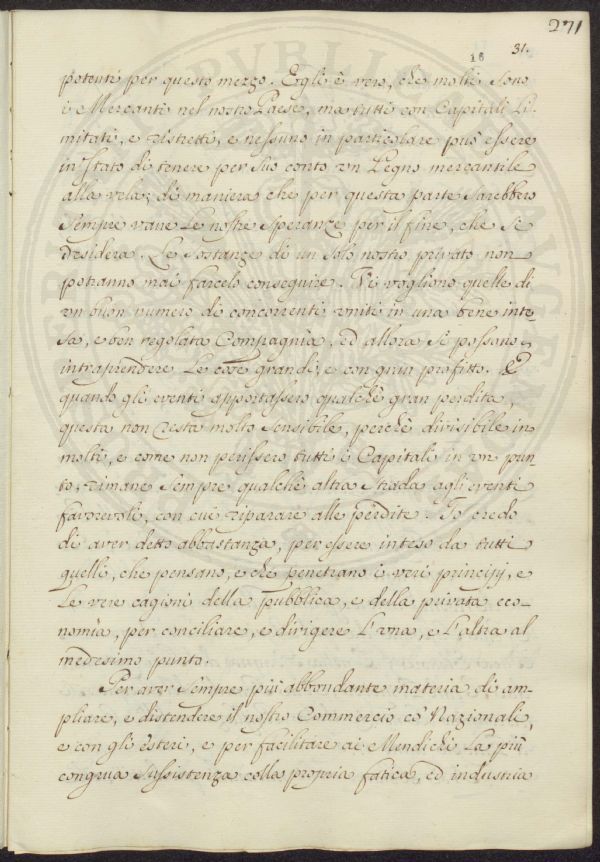 271
18 31.
potenti per questo mezzo. Egli è vero, che molti sono
i Mercanti nel nostro Paese, ma tutti con Capitali li-
mitati, e ristretti, e nessuno in particolare può essere
in stato di tenere per suo conto un Legno mercantile
alla vela; di maniera che per questa parte sarebbero
sempre vane le nostre speranze per il fine, che si
desidera. Le sostanze di un solo nostro privato non
potranno mai farcelo conseguire. Vi vogliono quelle di
un buon numero di concorrenti uniti in una bene inte-
sa, e ben regolata Compagnia, ed allora si possono
intraprendere le cose grandi, e con gran profitto. E
quando gli eventi apportassero qualche gran perdita,
questa non resta molto sensibile, perchè divisibile in
molti, e come non perissero tutti i Capitali in un pun-
to, rimane sempre qualche altra strada agli eventi
favorevoli, con cui riparare alle perdite. Io credo
di aver detto abbastanza, per essere inteso da tutti
quelli, che pensano, e che penetrano i veri principj, e
le vere cagioni della pubblica, e della privata eco-
nomia, per conciliare, e dirigere l'una, e l'altra al
medesimo punto.
Per aver sempre più abbondante materia di am-
pliare, e distendere il nostro Commercio co' Nazionali,
e con gli esteri, e per facilitare ai Mendichi la più
congrua sussistenza colla propria fatica, ed industria